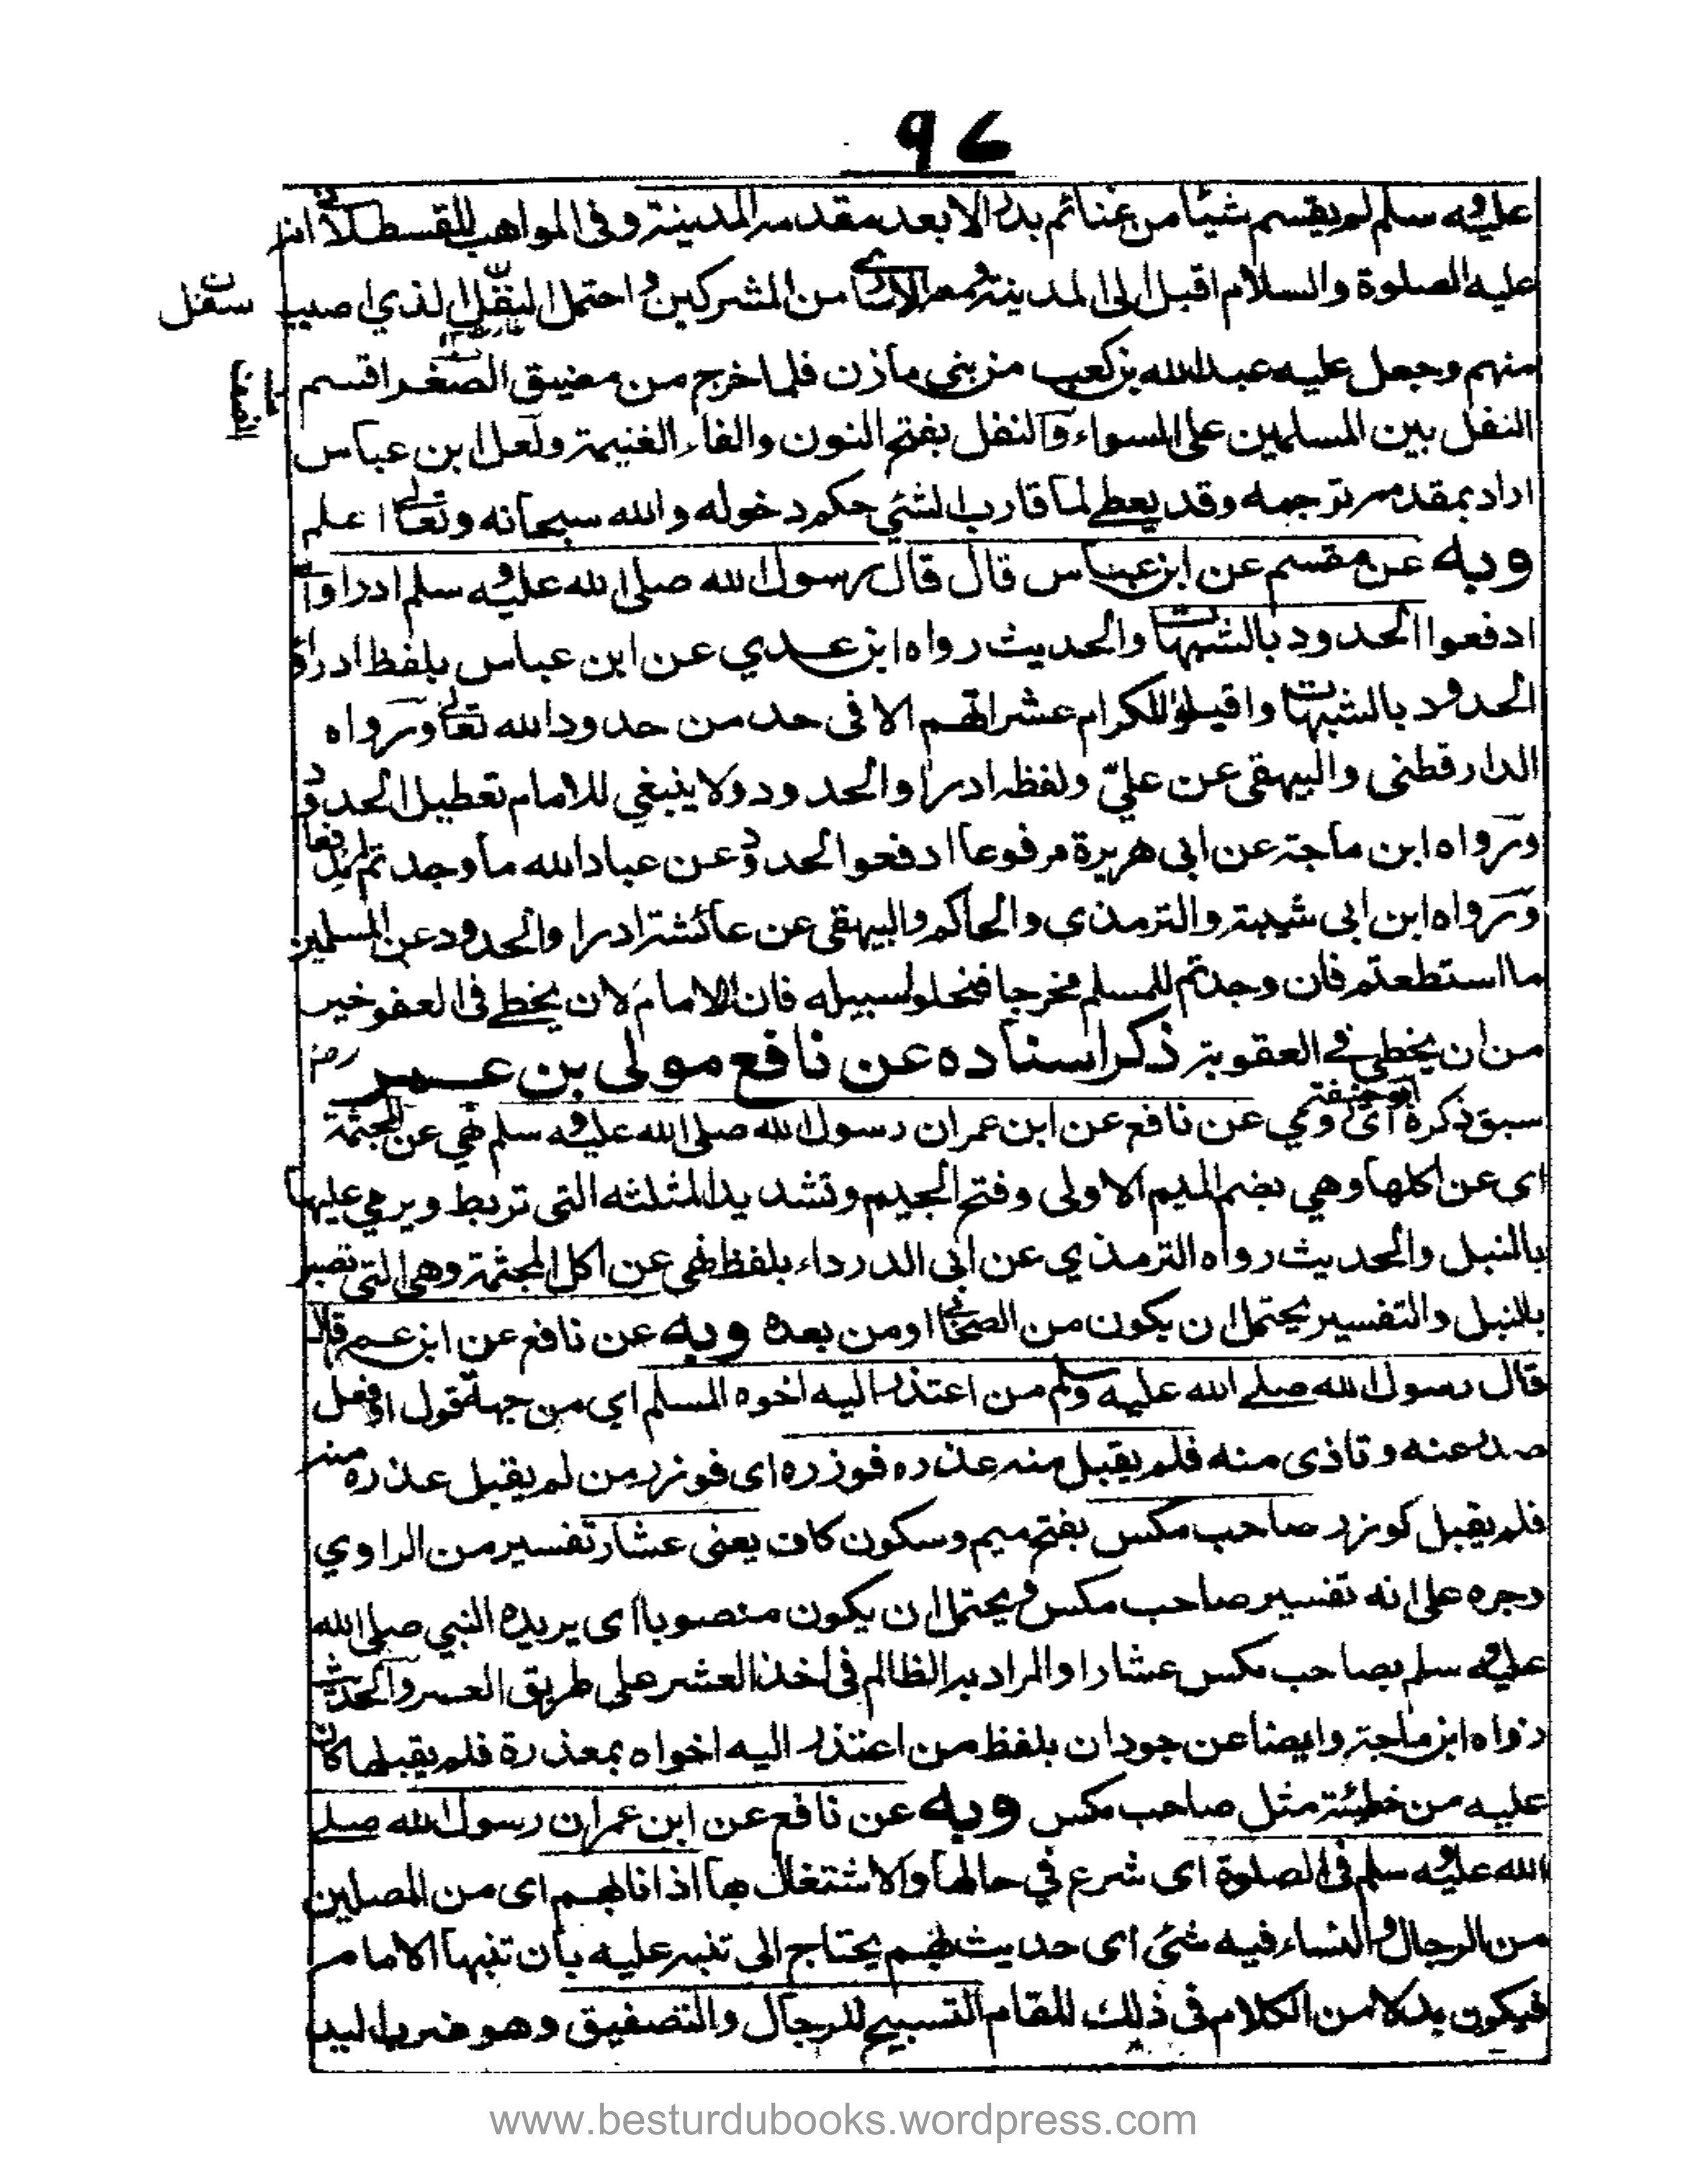 ٩٤
عليه وسلم لم يقسم شيئا من غنائم بدر الا بعد مقدمه المدينة وفى المواهب للقسطلانى انه
عليه الصلوة والسلام اقبل الى المدينة ومعه الاسارى من المشركين واحتمل النفل الذي اصيب
منهم وجعل عليه عبد الله بن كعب من بنى مازن فلما خرج من مضيق الصفراقسم
النفل بين المسلمين على السواء والنفل بفتح النون والفاء الغنيمة ولعل ابن عباس
اراد بمقدمه توجهه وقد يعطى لما قارب الشئي حكم دخوله والله سبحانه وتعالى اعلم
وبه عن مقسم عن ابن عباس قال قال رسول الله صلى الله عليه وسلم ادراوا
ادفعوا الحدود بالشبهات والحديث رواه ابن عدي عن ابن عباس بلفظ ادراوا
الحدود بالشبهات واقيلوا للكرام عثراتهم الا فى حد من حدود الله تعالى ورواه
الدارقطنى والبيهقى عن عليّ ولفظه ادراوا الحدود ولا ينبغي للامام تعطيل الحدود
ورواه ابن ماجة عن ابى هريرة مرفوعا ادفعوا الحدود عن عباد الله ما وجدتم له مدفعا
ورواه ابن ابى شيبة والترمذى والحاكم والبيهقى عن عائشة ادراوا الحدود عن المسلمين
ما استطعتم فان وجدتم للمسلم مخرجا فخلوا سبيله فان الامام لان يخطى فى العفو خير
من ان يخطى فى العقوبة ذكر اسناده عن نافع مولى بن عمر رضـ
سبق ذكره ابو حنيفة اى روي عن نافع عن ابن عمر ان رسول الله صلى الله عليه وسلم نهي عن المجثمة
اى عن اكلها وهي بضم الميم الاولى وفتح الجيم وتشديد المثلثه التى تربط ويرمي عليها
بالنبل والحديث رواه الترمذي عن ابى الدرداء بلفظ نهى عن اكل المجثمة وهى التى تصبر
بالنبل والتفسير يحتمل ان يكون من الصحابى او من بعده وبه عن نافع عن ابن عمر قال
قال رسول الله صلى الله عليه وسلم من اعتذر اليه اخوه المسلم اي من جهة قول او فعل
صدر عنه وتاذى منه فلم يقبل منه عذره فوزره اى فوزر من لم يقبل عذره منه
فلم يقبل كوزر صاحب مكس بفتح ميم وسكون كاف يعنى عشار تفسير من الراوي
وجره على انه تفسير صاحب مكس ويحتمل ان يكون منصوبا اى يريده النبي صلى الله
عليه وسلم بصاحب مكس عشارا والمراد به الظالم فى اخذ العشر على طريق العسر والحديث
رواه ابن ماجة وايضا عن جودان بلفظ من اعتذر اليه اخواه بمعذرة فلم يقبلها كان
عليه من خطيئة مثل صاحب مكس وبه عن نافع عن ابن عمر ان رسول الله صلى
الله عليه وسلم فى الصلوة اى شرع في حالها والاشتغال بها اذا نابهم اى من المصلين
من الرجال والنساء فيه شئ اى حديث لهم يحتاج الى تنبه عليه بان تنبها الامام
فيكون بدلا من الكلام فى ذلك المقام التسبيح للرجال والتصفيق وهو ضرب اليد
www.besturdubooks.wordpress.com